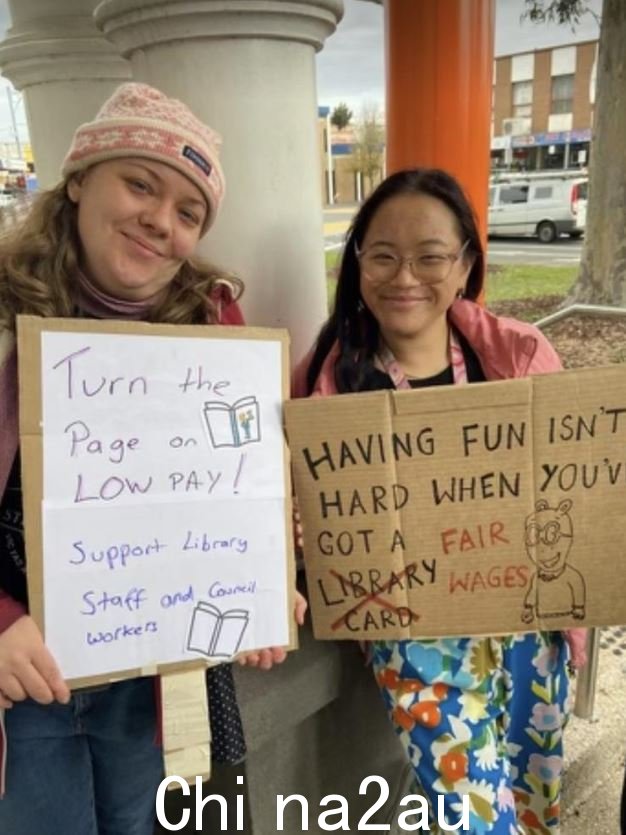 Turn the
Page on
LOW PAY!
Support Library
Staff and Council
workers
HAVING FUN ISN'T
HARD WHEN YOU'V
GOT A FAIR
LIBRARY WAGES
CARD
Chi na2au